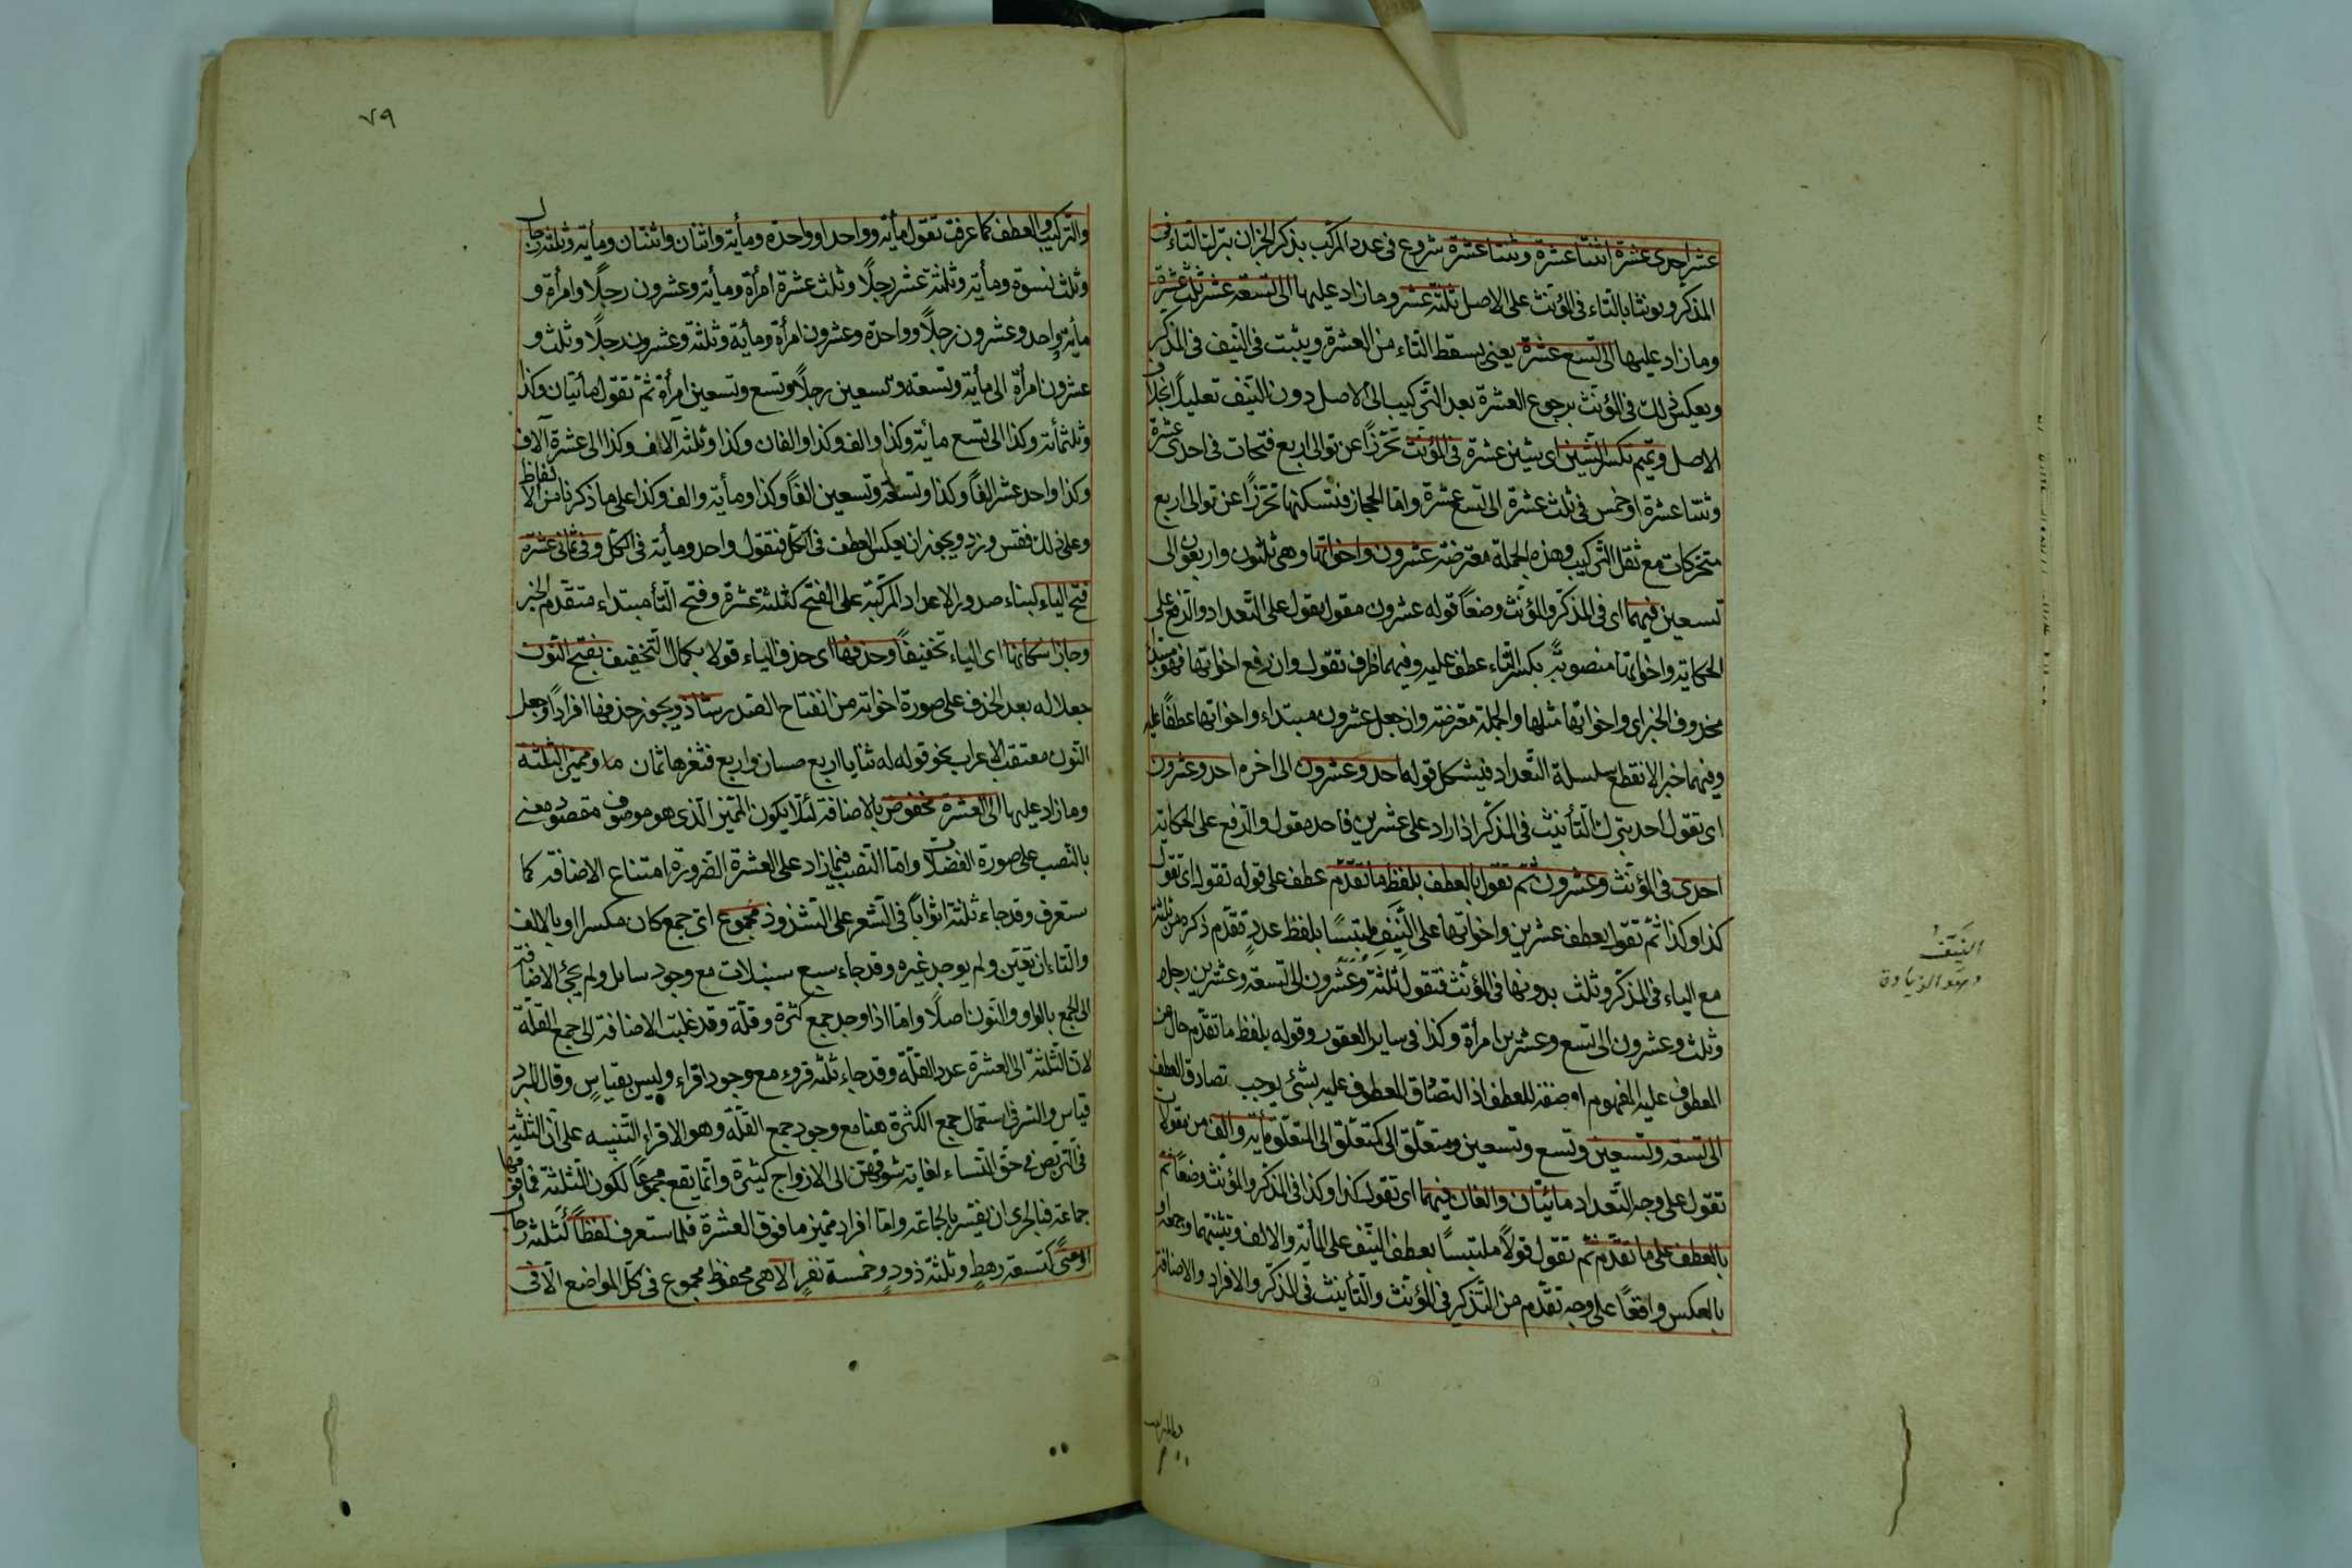 عشر احدى عشرة اثنتا عشرة وثنتا عشرة شروع فى عدد المركب بذكر الجزان بترك التاء فى
المذكر ويونثا بالتاء فى المؤنث على الاصل ثلثة عشر وما زاد عليها الى تسعة عشر ثلث عشرة
وما زاد عليها الى تسع عشرة يعنى يسقط التاء من العشرة ويثبت فى النيف فى المذكر
ويعكس ذلك فى المؤنث برجوع العشرة بعد التركيب الى الاصل دون النيف تعليلا
الاصل وتميم تكسر الشين اى شين عشرة فى المؤنث تحرزا عن توالى اربع فتحات فى احدى عشرة
وثنتا عشرة او خمس فى ثلث عشرة الى تسع عشرة واما الحجاز فتسكنها تحرزا عن توالى اربع
متحركات مع ثقل التركيب وهذه الجملة معترضة عشرون واخواتها وهى ثلثون واربعون الى
تسعين فيهما اى فى المذكر والمؤنث وضعا قوله عشرون مقول يقول على التعداد والرفع على
الحكاية واخواتها منصوبة بكسر التاء عطف عليه وفيهما ظرف تقول وان رفع اخواتها فهو مبتداء
محذوف الخبر اى واخواتها مثلها والجملة معترضة وان جعل عشرون مبتداء واخواتها عطفا عليه
وفيهما خبر الانقطع سلسلة التعداد فيشكل قوله احد وعشرون الى اخره احد وعشرون
اى تقول احد بترك التأنيث فى المذكر اذا زاد على عشرين فاحد مقول والرفع على الحكاية
احدى فى المؤنث وعشرون ثم تقول بالعطف بلفظ ما تقدم عطف على قوله تقول اى تقول
كذا وكذا ثم تقول بعطف عشرين واخواتها على النيف ملتبسا بلفظ عدد تقدم ذكره من ثلثة
مع الياء فى المذكر وثلث بدونها فى المؤنث فتقول ثلثة وعشرون الى تسعة وعشرين رجلا
وثلث وعشرون الى تسع وعشرين امرأة وكذا فى ساير العقود وقوله بلفظ ما تقدم حال من
المعطوف عليه المفهوم او صفة للعطف اذ التصاق المعطوف عليه بشئ يوجب تصادق العطف
الى تسعة وتسعين وتسع وتسعين ومتعلق الى كتعلق الى المتعلق مأية والف من مقولات
تقول على وجه التعداد مائتان والفان فيهما اى تقول كذا وكذا فى المذكر والمؤنث وضعا ثم
بالعطف على ما تقدم ثم تقول قولا ملتبسا بعطف النيف على المأية والالف وتثنيتهما وجمعه او
بالعكس واقعا على وجه تقدم من التذكير فى المؤنث والتأنيث فى المذكر والافراد والاضافة
النيف
وهو الزيادة
٧٩
والتركيب والعطف كما عرفت تقول مأية وواحد او واحدة ومأية واثنان واثنتان ومأية وثلثة رجال
وثلث نسوة ومأية وثلثة عشر رجلا وثلث عشرة امرأة ومأية وعشرون رجلا وامرأة و
مأية واحد وعشرون رجلا وواحدة وعشرون امرأة ومأية وثلثة وعشرون رجلا وثلث و
عشرون امرأة الى مأية وتسعة وتسعين رجلا وتسع وتسعين امرأة ثم تقول مأتيان وكذا
وثلثمأة وكذا الى تسع مأية وكذا والف وكذا والفان وكذا وثلثة آلاف وكذا الى عشرة آلاف
وكذا واحد عشر الفا وكذا وتسعة وتسعين الفا وكذا ومأية والف وكذا على ما ذكرنا من الالفاظ
وعلى ذلك فقس وزد ويجوز ان يعكس العطف فى الكل فتقول واحد ومأية فى الكل وفى ثمانى عشرة
فتح الياء كبناء صدور الاعداد المركبة على الفتح كثلثة عشرة وفتح التأ مبتداء متقدم الخبر
وجاز اسكانها اى الياء تخفيفا وحذفها اى حذف الياء قولا بكمال التخفيف بفتح النون
جعلا له بعد الحذف على صورة اخواته من انفتاح الصدر شاذ ويجوز حذفها افرادا وجعل
النون معتقب الاعراب نحو قوله له ثنايا اربع حسان واربع فثغرها ثمان ومميز الثلثة
وما زاد عليها الى العشرة مخفوض بالاضافة لئلا يكون المميز الذى هو موصوف مقصود معنى
بالنصب على صورة الفضلات واما النصب فيما زاد على العشرة الضرورة امتناع الاضافة كما
ستعرف وقد جاء ثلثة اثوابا فى الشعر على الشذوذ مجموع اى جمع كان مكسرا او بالالف
والتاء ان تعين ولم يوجد غيره وقد جاء سبع سنبلات مع وجود سنابل ولم يجئ الاضافة
الى الجمع بالواو والنون اصلا واما اذا وجد جمع كثرة وقلة وقد غلبت الاضافة الى جمع القلة
لان الثلثة الى العشرة عدد القلة وقد جاء ثلثة قروء مع وجود اقراء وليس بقياس وقال المبرد
قياس والسر فى استعمال جمع الكثرة هنا مع وجود جمع القلة وهو الاقراء التنبيه على ان الثلثة
فى التربص فى حق النساء لغاية شوقهن الى الازواج كثيرة وانما يقع مجموعا لكون الثلثة فما فوقها
جماعة فبالحرى ان يفسر بالجماعة واما افراد مميز ما فوق العشرة فلما ستعرف لفظا كثلثة رجال
او معنى كتسعة رهط وثلثة ذود وخمسة نفر الا هى محفوظ مجموع فى كل المواضع الا فى